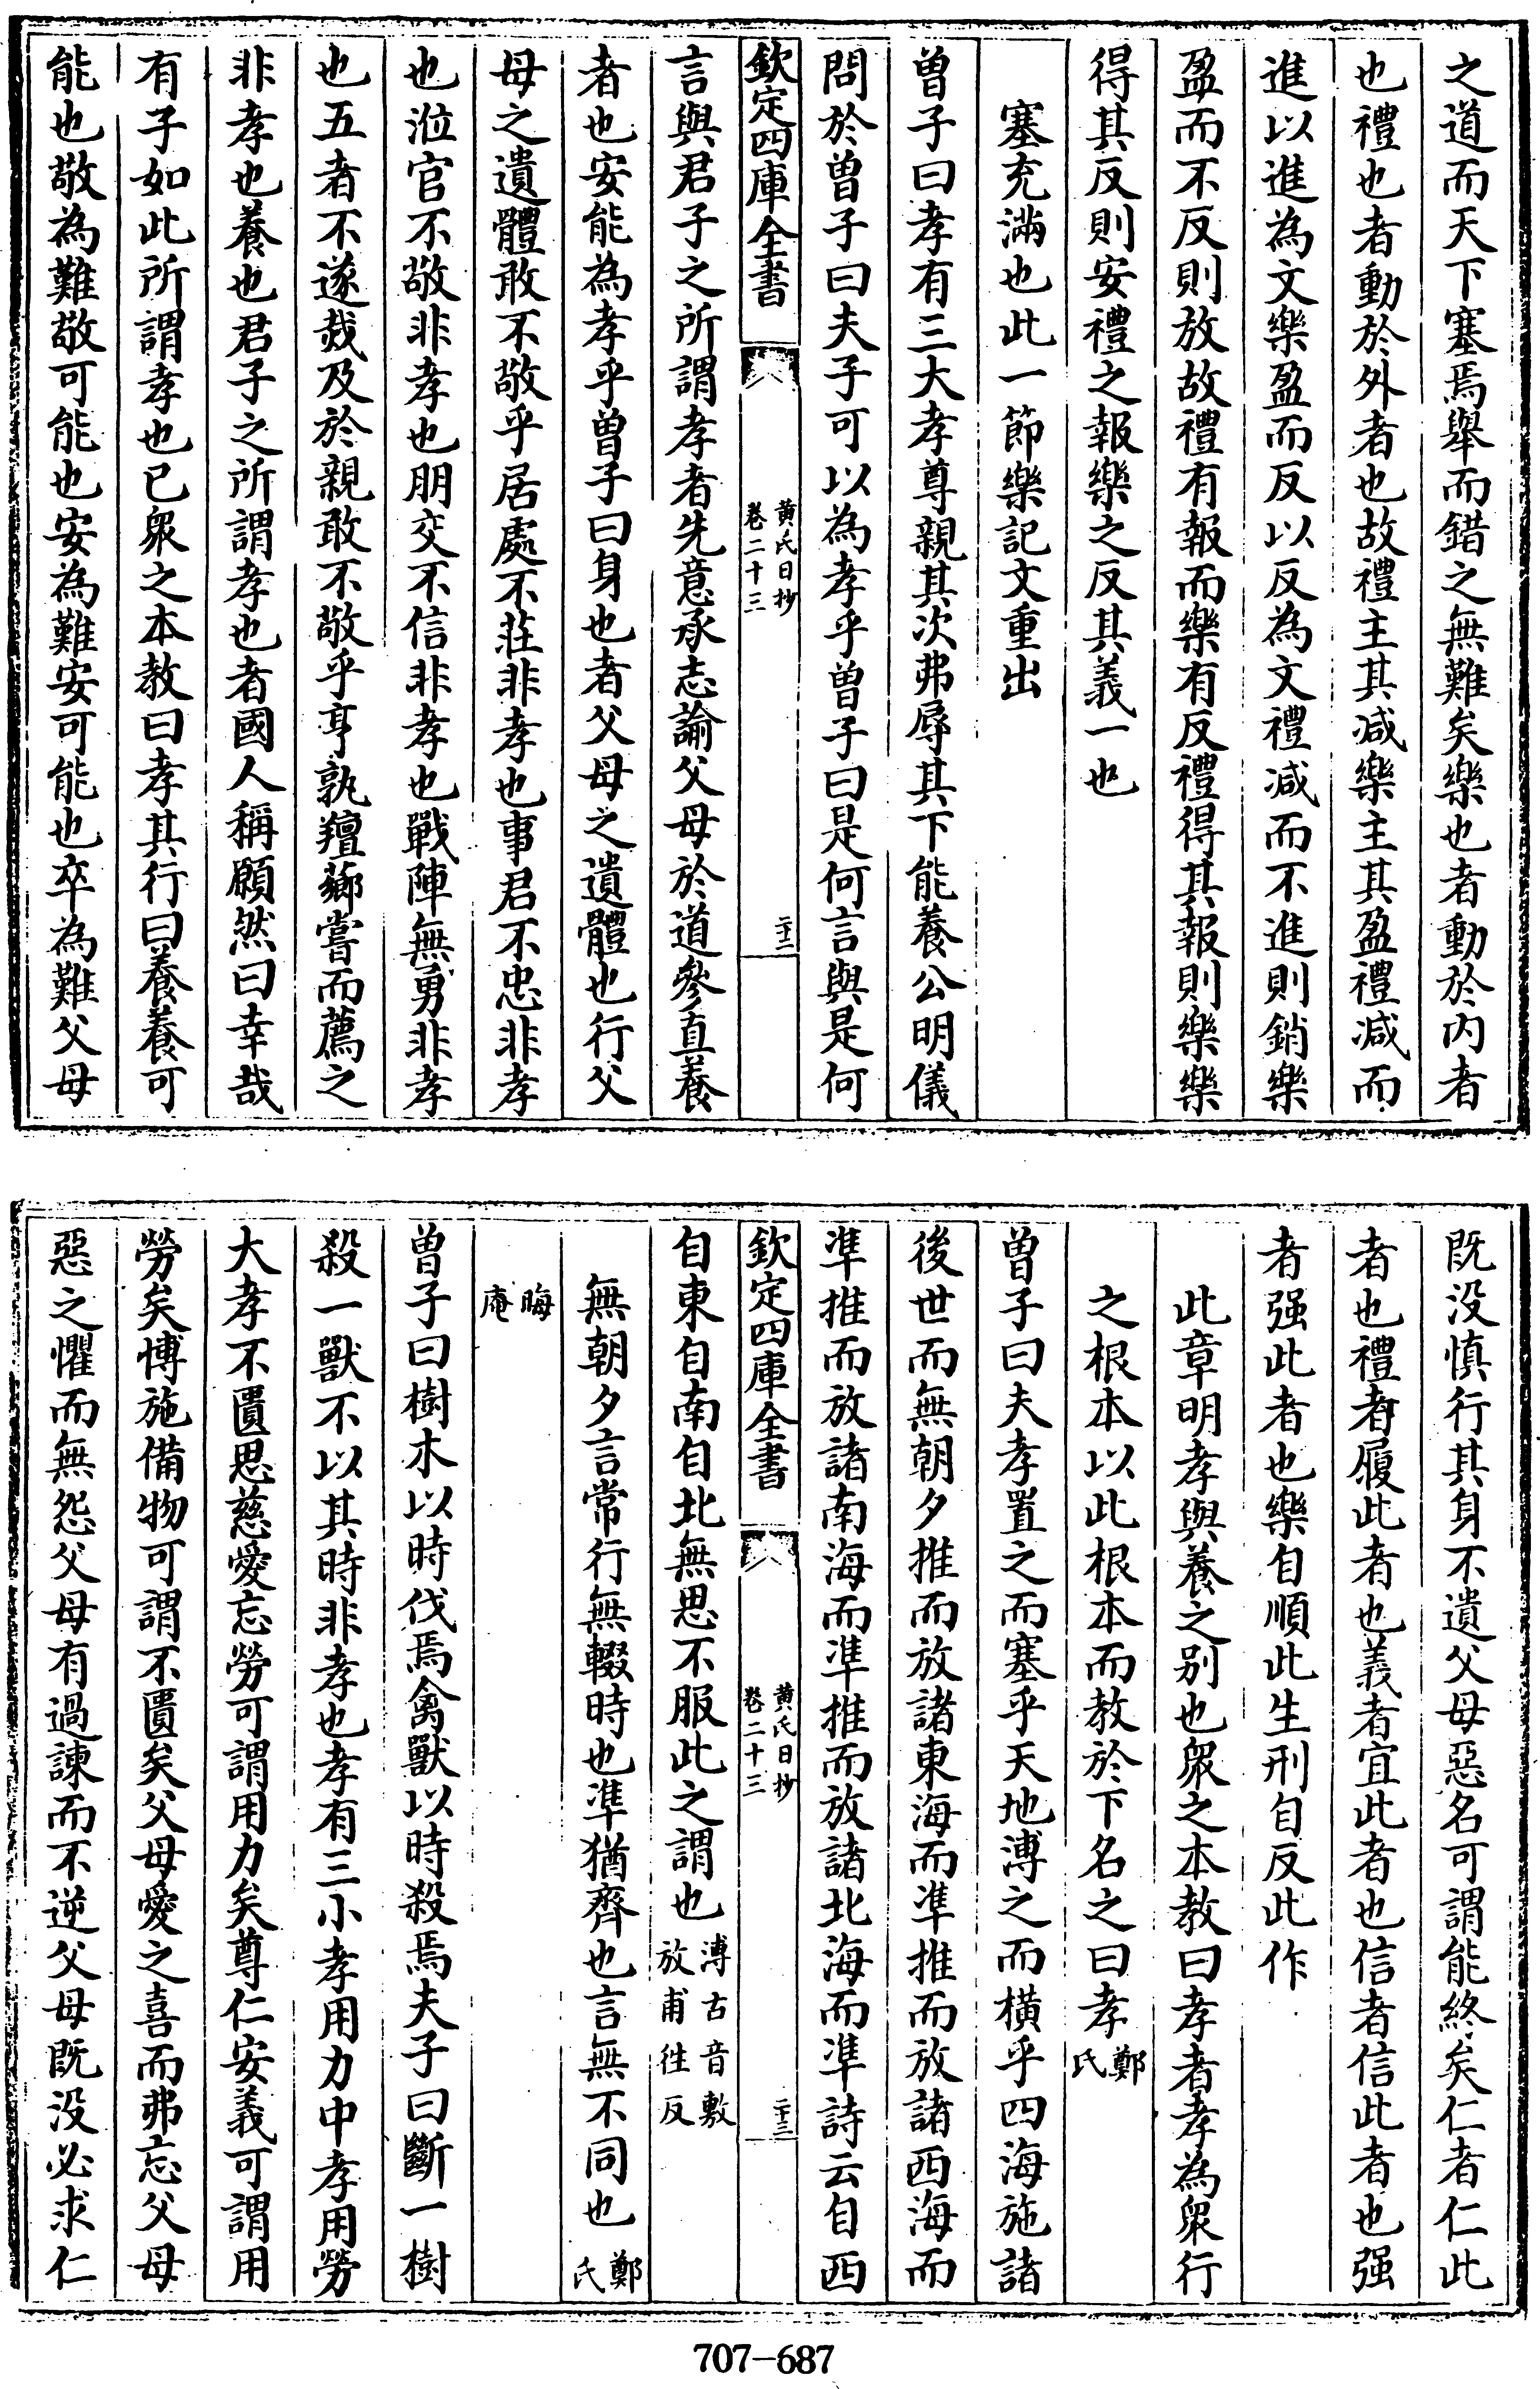 之道而天下塞焉舉而錯之無難矣樂也者動於内者
也禮也者動於外者也故禮主其减樂主其盈禮减而
進以進為文樂盈而反以反為文禮减而不進則銷樂
盈而不反則放故禮有報而樂有反禮得其報則樂樂
得其反則安禮之報樂之反其義一也
塞充滿也此一節樂記文重出
曾子曰孝有三大孝尊親其次弗辱其下能養公明儀
問於曾子曰夫子可以為孝乎曾子曰是何言與是何
欽定四庫全書
黄氏日抄
卷二十三
二十二
言與君子之所謂孝者先意承志諭父母於道參直養
者也安能為孝乎曾子曰身也者父母之遺體也行父
母之遺體敢不敬乎居處不莊非孝也事君不忠非孝
也涖官不敬非孝也朋交不信非孝也戰陣無勇非孝
也五者不遂烖及於親敢不敬乎亨孰羶薌嘗而薦之
非孝也養也君子之所謂孝也者國人稱願然曰幸哉
有子如此所謂孝也已衆之本教曰孝其行曰養養可
能也敬為難敬可能也安為難安可能也卒為難父母
既沒慎行其身不遺父母惡名可謂能終矣仁者仁此
者也禮者履此者也義者宜此者也信者信此者也强
者强此者也樂自順此生刑自反此作
此章明孝與養之别也衆之本教曰孝者孝為衆行
之根本以此根本而教於下名之曰孝鄭氏
曾子曰夫孝置之而塞乎天地溥之而橫乎四海施諸
後世而無朝夕推而放諸東海而準推而放諸西海而
準推而放諸南海而準推而放諸北海而準詩云自西
欽定四庫全書
黄氏日抄
卷二十三
二十三
自東自南自北無思不服此之謂也溥古音敷放甫徃反
無朝夕言常行無輟時也準猶齊也言無不同也鄭氏
晦庵
曾子曰樹木以時伐焉禽獸以時殺焉夫子曰斷一樹
殺一獸不以其時非孝也孝有三小孝用力中孝用勞
大孝不匱思慈愛忘勞可謂用力矣尊仁安義可謂用
勞矣博施備物可謂不匱矣父母愛之喜而弗忘父母
惡之懼而無怨父母有過諫而不逆父母既沒必求仁
707-687